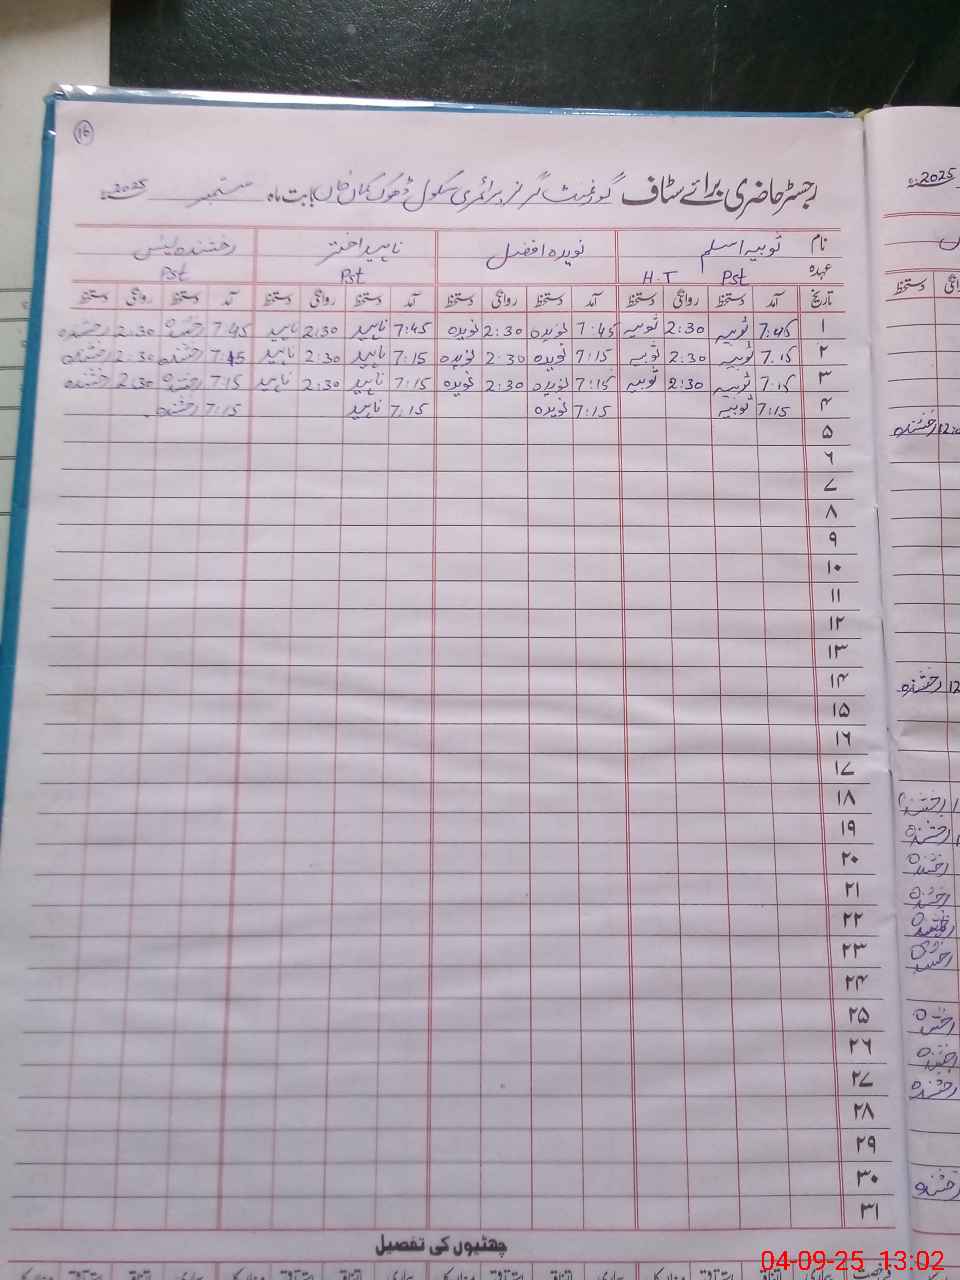 ۱۶
رجسٹر حاضری برائے سٹاف گورنمنٹ گرلز پرائمری سکول ڈھوک کمال خان بابت ماہ ستمبر 2025
نام ثوبیہ اسلم نویدہ افضل ناہید اختر رخشندہ
عہدہ Pst H.T Pst Pst
تاریخ آمد دستخط روانگی دستخط آمد دستخط روانگی دستخط آمد دستخط روانگی دستخط آمد دستخط روانگی دستخط
۱ 7:45 ثوبیہ 2:30 ثوبیہ 7:45 نویدہ 2:30 نویدہ 7:45 ناہید 2:30 ناہید 7:45 رخشندہ 2:30 رخشندہ
۲ 7:15 ثوبیہ 2:30 ثوبیہ 7:15 نویدہ 2:30 نویدہ 7:15 ناہید 2:30 ناہید 7:15 رخشندہ 2:30 رخشندہ
۳ 7:15 ثوبیہ 2:30 ثوبیہ 7:15 نویدہ 2:30 نویدہ 7:15 ناہید 2:30 ناہید 7:15 رخشندہ 2:30 رخشندہ
۴ 7:15 ثوبیہ 7:15 نویدہ 7:15 ناہید 7:15 رخشندہ
۵
۶
۷
۸
۹
۱۰
۱۱
۱۲
۱۳
۱۴
۱۵
۱۶
۱۷
۱۸
۱۹
۲۰
۲۱
۲۲
۲۳
۲۴
۲۵
۲۶
۲۷
۲۸
۲۹
۳۰
۳۱
چھٹیوں کی تفصیل
2025
دستخط
رخشندہ
رخشندہ
رخشندہ
رخشندہ
رخشندہ
رخشندہ
رخشندہ
رخشندہ
رخشندہ
رخشندہ
رخشندہ
رخشندہ
04-09-25 13:02